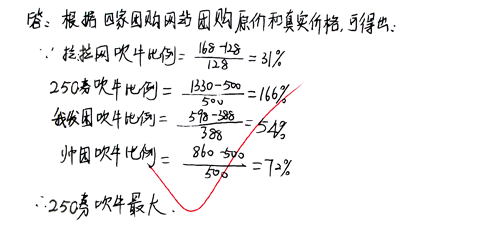 答：根据四家团购网站团购原价和真实价格，可得出：
∵拉拉网吹牛比例=(168-128)/128=31%
250券吹牛比例=(1330-500)/500=166%
我发团吹牛比例=(598-388)/388=54%
帅团吹牛比例=(860-500)/500=72%
∴250券吹牛最大.